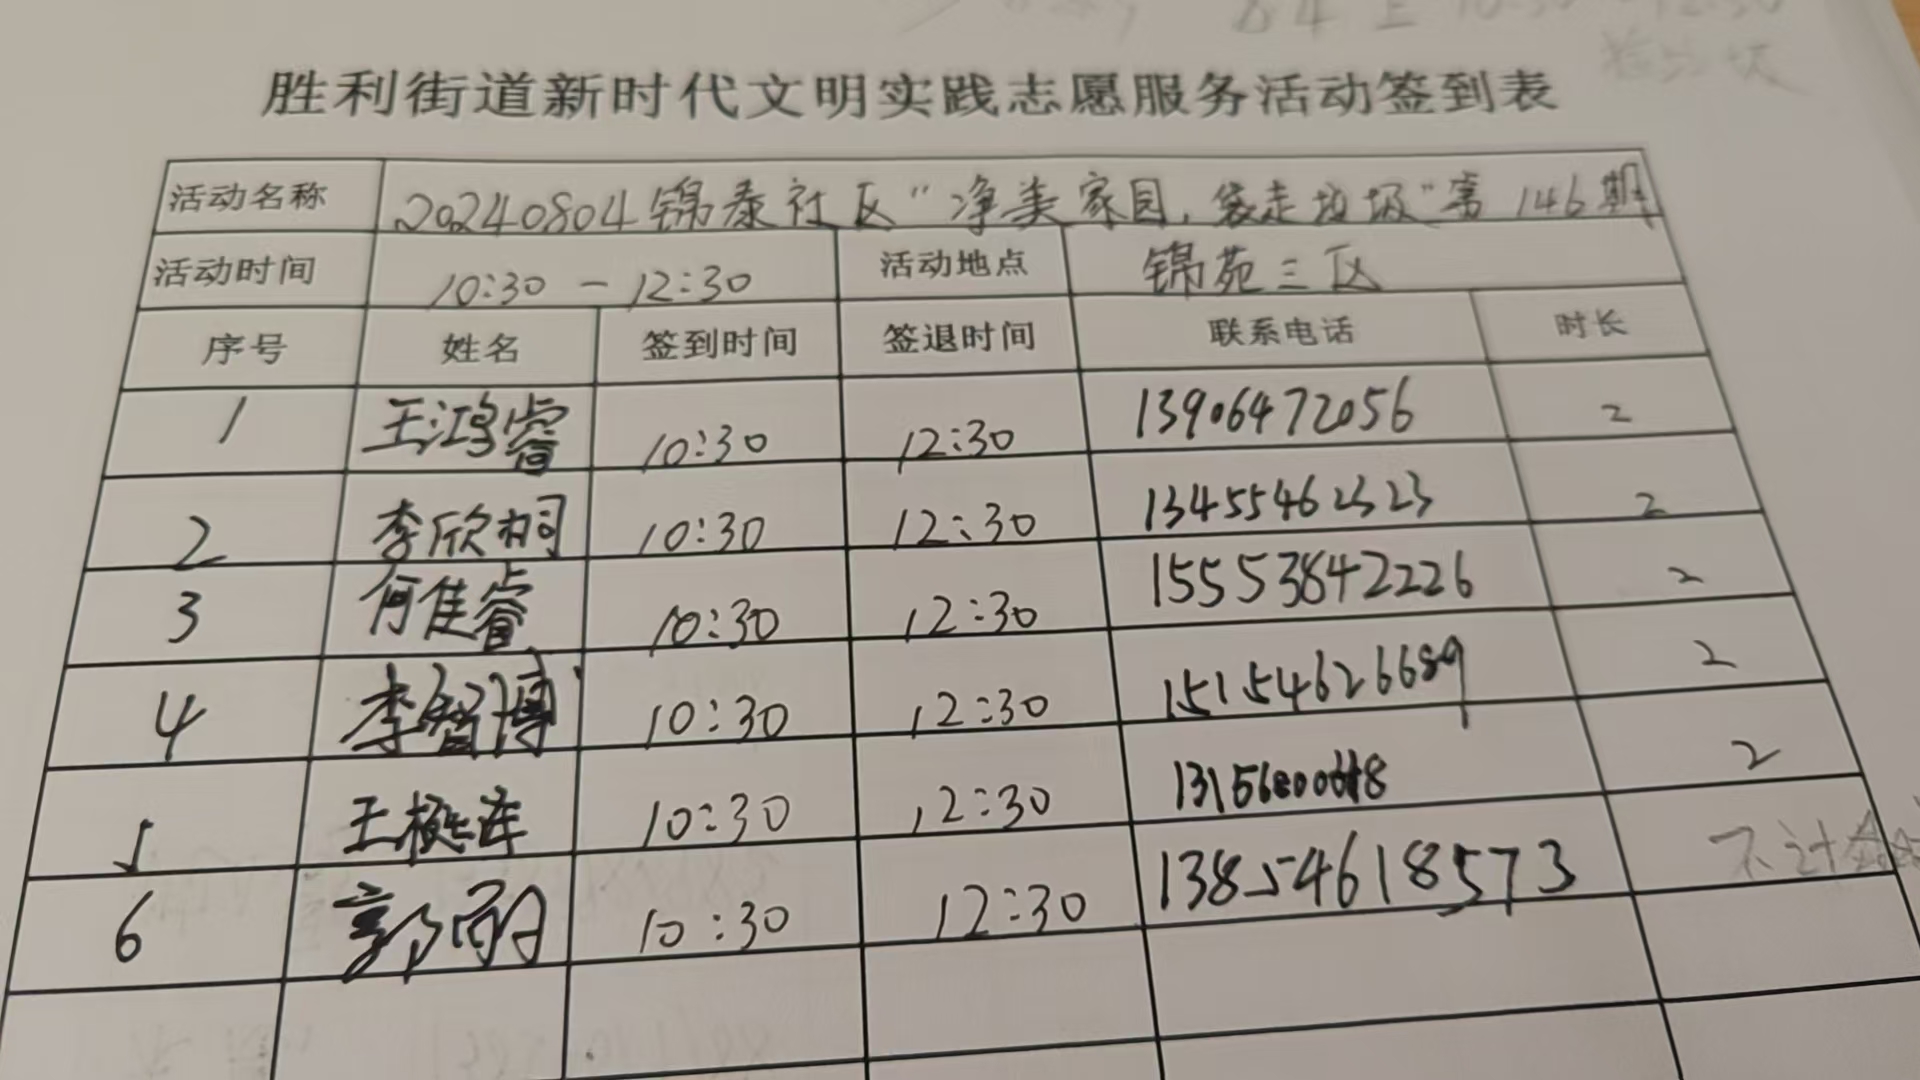 胜利街道新时代文明实践志愿服务活动签到表
活动名称 20240804锦泰社区“净美家园,袋走垃圾”第146期
活动时间 10:30-12:30 活动地点 锦苑三区
序号 姓名 签到时间 签退时间 联系电话 时长
1 王鸿睿 10:30 12:30 13906472056 2
2 李欣桐 10:30 12:30 13455462323 2
3 何佳睿 10:30 12:30 15553842226 2
4 李智博 10:30 12:30 15154626689 2
5 王 10:30 12:30 2
6 郭丽 10:30 12:30 13854618573 不计